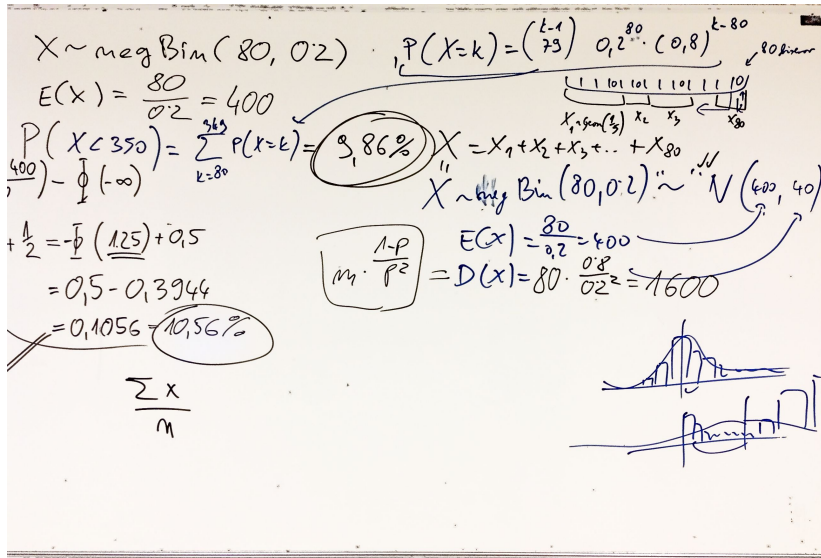 X ~ neg Bin ( 80, 0.2 )
, P(X=k) = (k-1 79) 0,2^80 · (0,8)^(k-80)
E(X) = 80/0.2 = 400
1 1 10 1 10 1 1 10 1 1 1 10
X_1 ~ geom(1/5) X_2 X_3 X_80
P( X < 350 ) = Σ_{k=80}^{349} P(X=k) = 9,86%
X = X_1 + X_2 + X_3 + .. + X_80
400) - Φ (-∞)
X ~ neg Bin (80, 0.2) "~" N (400, 40)
+ 1/2 = -Φ (1.25) + 0,5
E(X) = 80/0,2 = 400
m · (1-p)/p² = D(X) = 80 · 0.8/02² = 1600
= 0,5 - 0,3944
= 0,1056 = 10,56%
Σ x
m